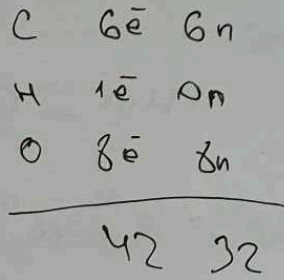 C 6ē 6n
H 1ē 0n
O 8ē 8n
42 32